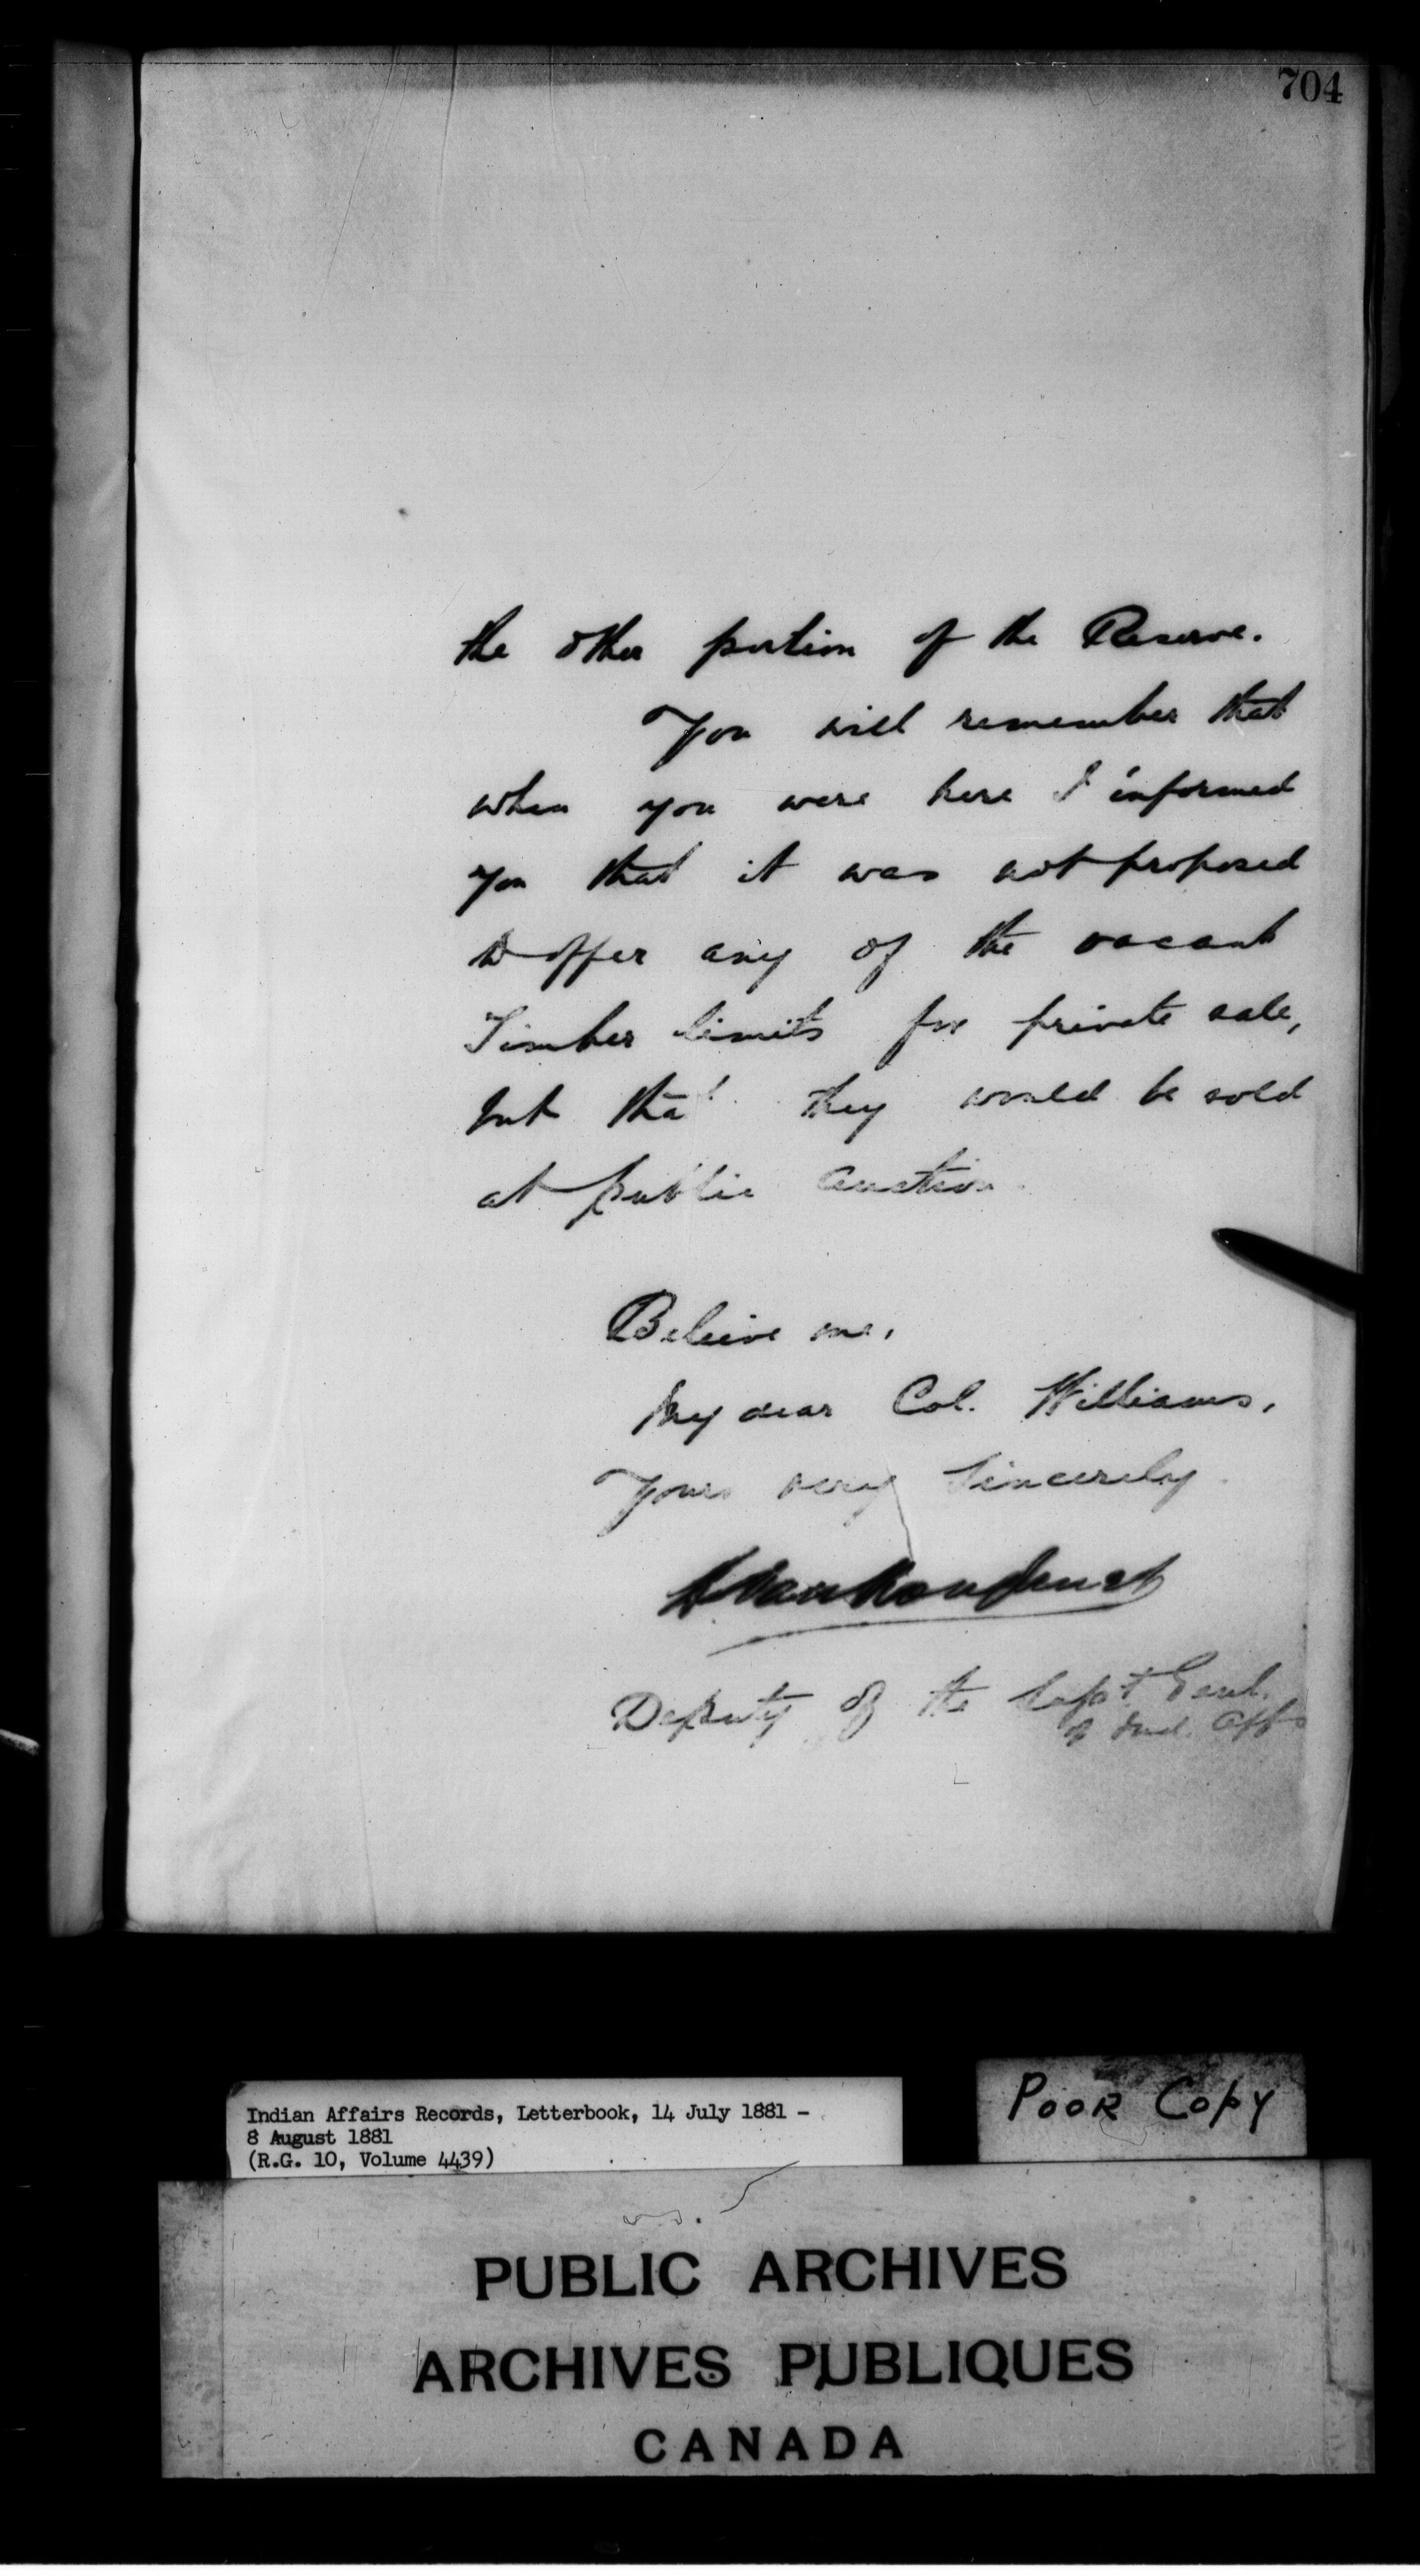 704
the other portion of the Reserve.
You will remember that
when you were here I informed
you that it was not proposed
to offer any of the vacant
Timber limits for private sale,
but that they would be sold
at public auction.
Believe me,
My dear Col. Williams,
Yours very sincerely
L VanKoughnet
Deputy of the Supt. Genl.
of Ind. Affs
Indian Affairs Records, Letterbook, 14 July 1881 -
8 August 1881
(R.G. 10, Volume 4439)
POOR COPY
PUBLIC ARCHIVES
ARCHIVES PUBLIQUES
CANADA